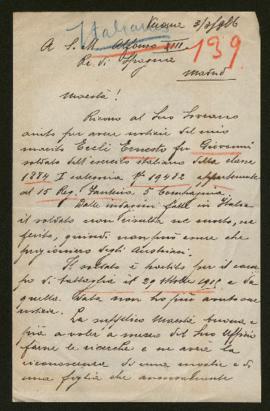 Italiana
139
A S. M. Alfonso XIII
Re di Spagna
Madrid
Maestà!
Ricorro al Suo Sovrano
aiuto per avere notizie del mio
marito Ercoli Ernesto fu Giovanni
soldato dell'esercito italiano della classe
1884 I categoria Nº 19482 appartenente
al 15 Reg. Fanteria, 5 Compagnia.
Dalle indagini fatte in Italia
il soldato non risulta nè morto, nè
ferito, quindi non può essere che
prigioniero degli Austriaci.
Il soldato è partito per il cam
po di battaglia il 29 1915 e da
quella data non ho più avuto sue
notizie.
La supplico Maestà buona e
pia a voler a mezzo del Suo Ufficio
farne le ricerche e ne avrà la
riconoscenza di una madre e di
una figlia che ansiosamente